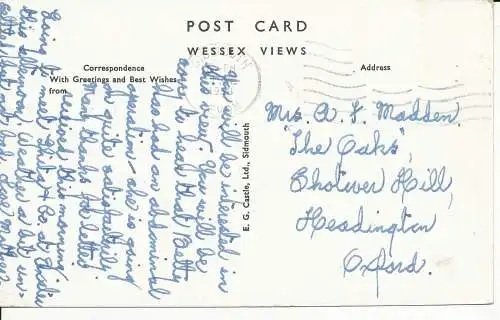 POST CARD
WESSEX VIEWS
Correspondence
With Greetings and Best Wishes
from
Address
E. G. Castle, Ltd., Sidmouth
You will be interested in
this view. You will be
sorry to hear that Betty
has had an abdominal
operation - she is going
on quite satisfactorily.
Many thanks for letter
received this morning.
Going to meet & Co. at
this afternoon. Weather a bit un-
but not bad. Love
Mrs. A. L. Madden.
"The Oaks",
Shotover Hill,
Headington
Oxford.